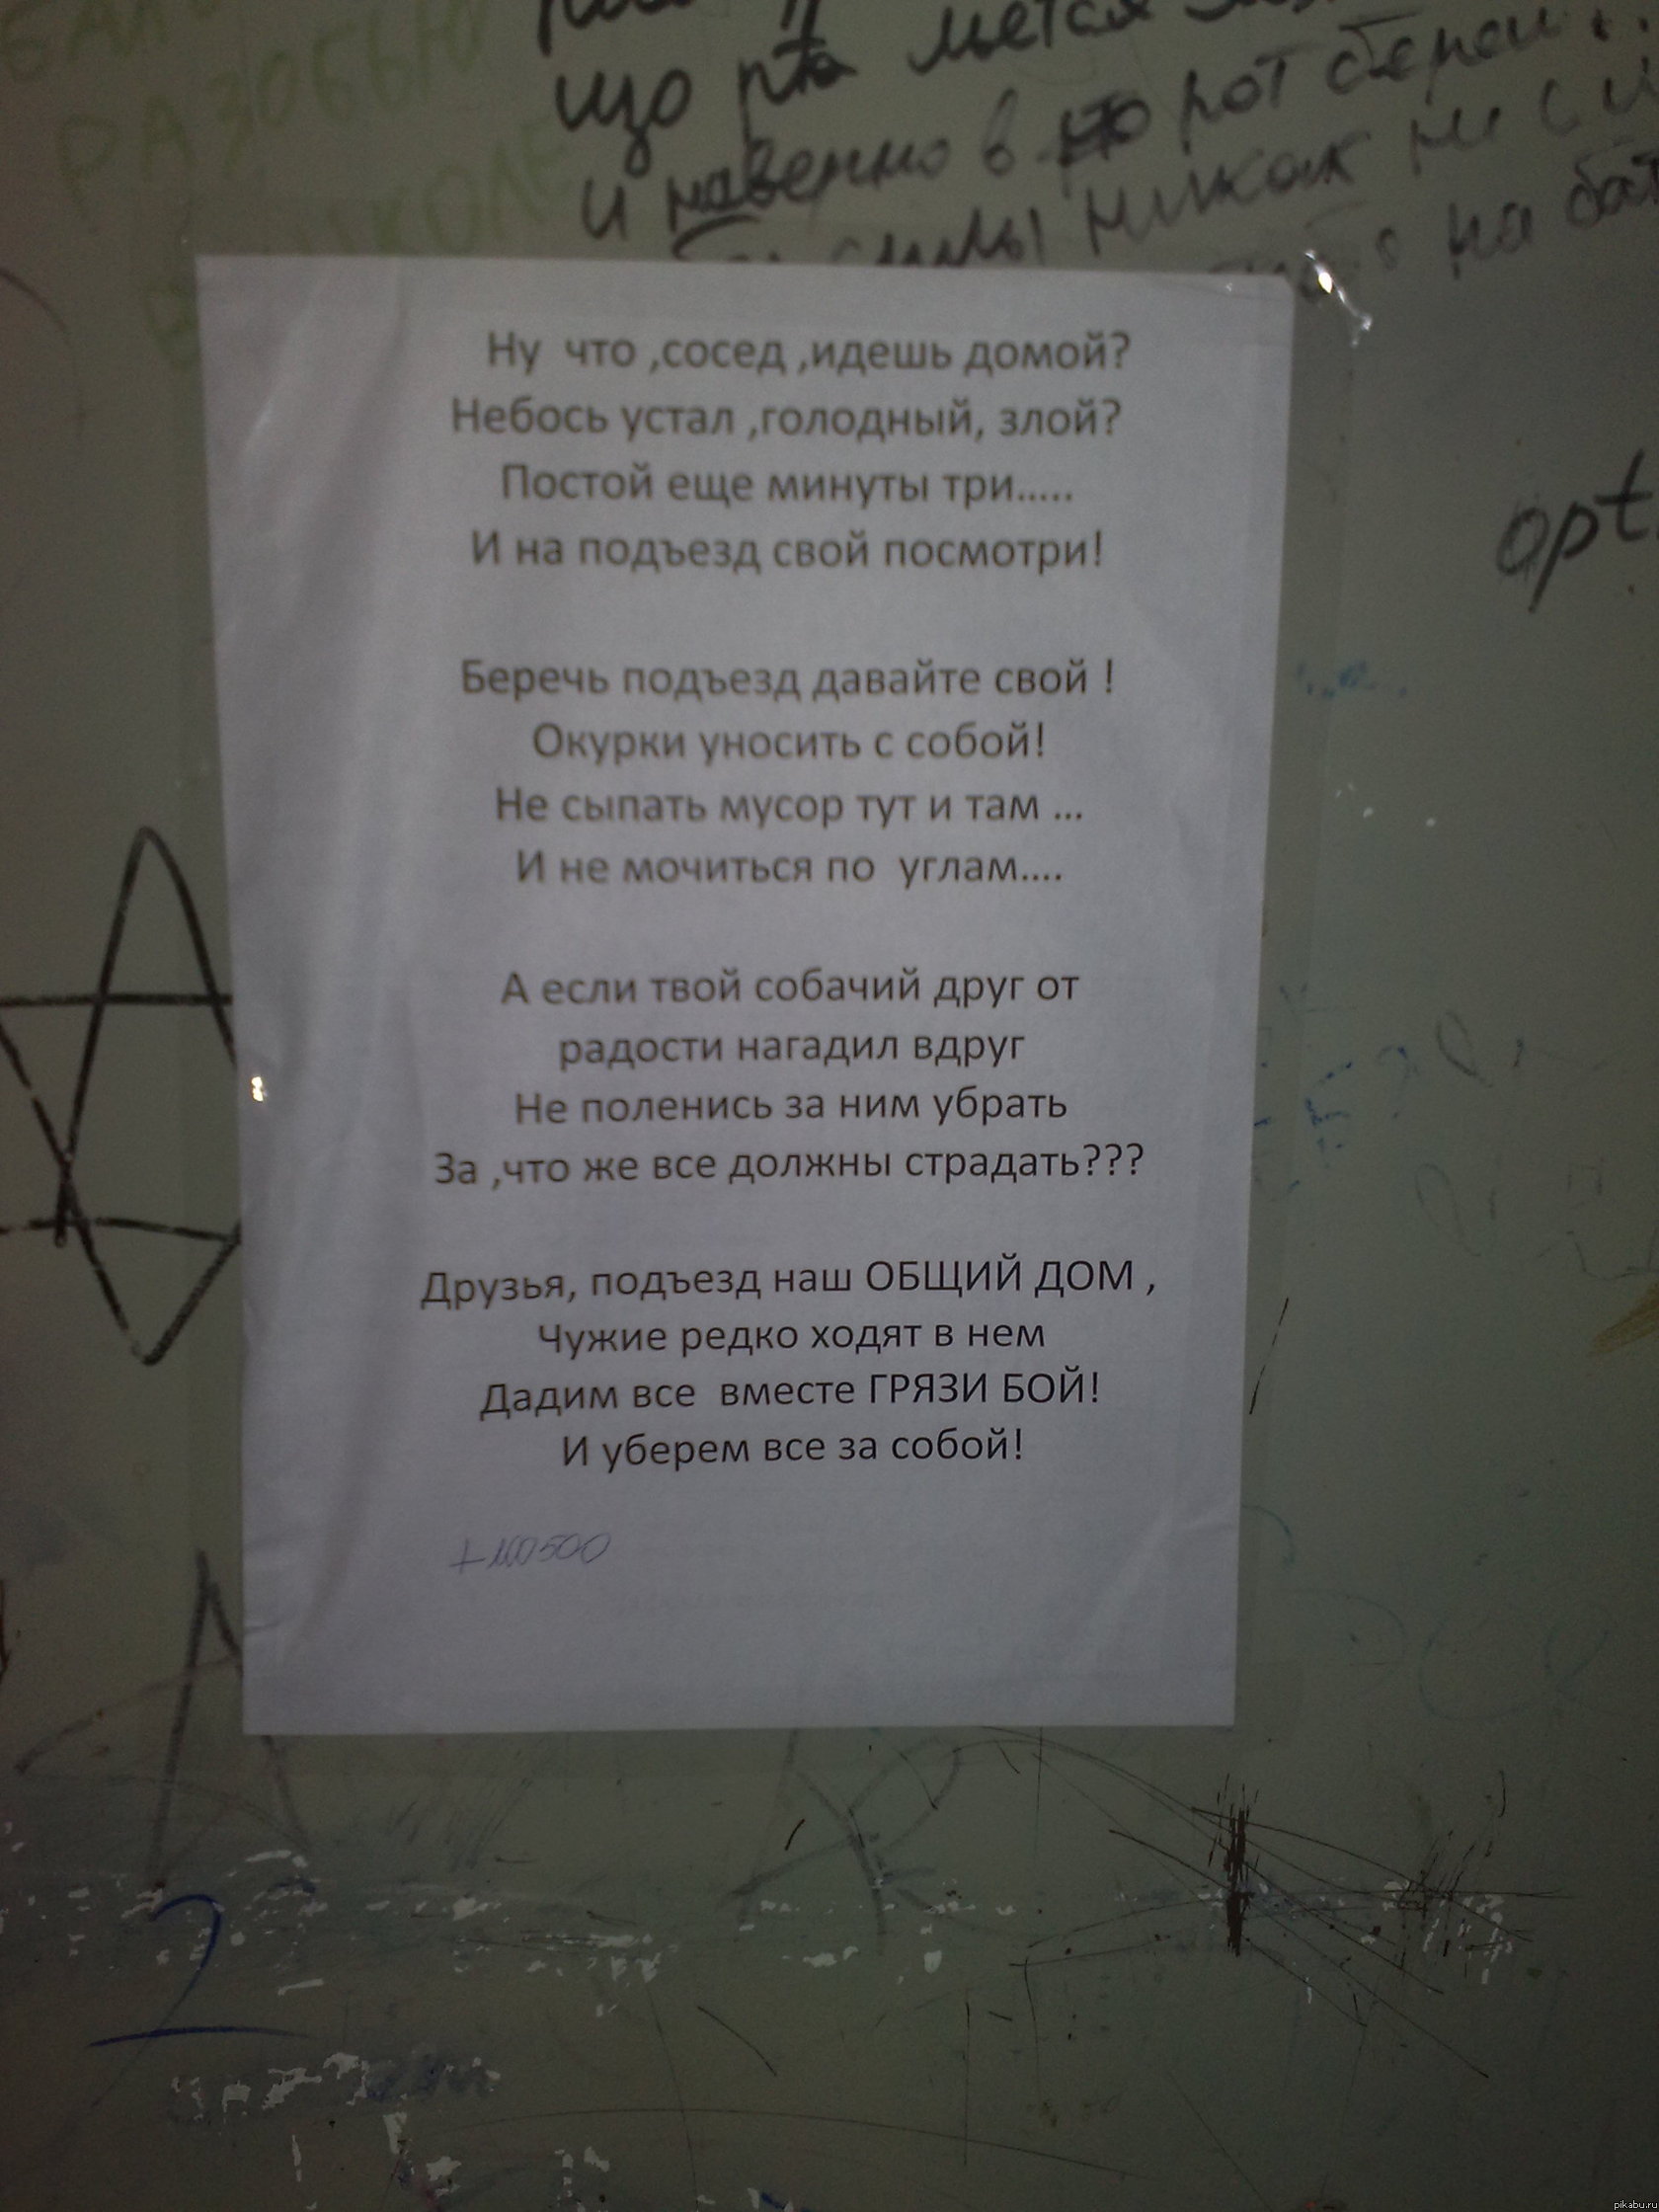 РАЗОБЬЮ
що рта мется
и наверно в рот бери..
никак ни
на бат
Ну что ,сосед ,идешь домой?
Небось устал ,голодный, злой?
Постой еще минуты три.....
И на подъезд свой посмотри!
opt
Беречь подъезд давайте свой !
Окурки уносить с собой!
Не сыпать мусор тут и там ...
И не мочиться по углам....
А если твой собачий друг от
радости нагадил вдруг
Не поленись за ним убрать
За ,что же все должны страдать???
Друзья, подъезд наш ОБЩИЙ ДОМ ,
Чужие редко ходят в нем
Дадим все вместе ГРЯЗИ БОЙ!
И уберем все за собой!
+100500
2
pikabu.ru